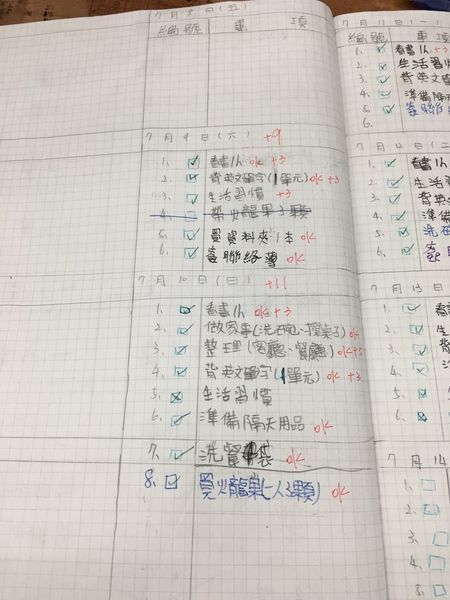 7月8日(五)
編號 事項
7月9日(六) +9
1. 看書1h ok +3
2. 背英文單字(1單元) ok +3
3. 生活習慣 +3
4. 帶火龍果3顆
5. 買資料夾1本 ok
6. 簽聯絡簿 ok
7月10日(日) +11
1. 看書1h ok +3
2. 做家事(洗碗、擦桌子) ok
3. 整理(客廳、餐廳) ok+5
4. 背英文單字(1單元) ok +3
5. 生活習慣
6. 準備隔天用品 ok
7. 洗餐袋 ok
8. 買火龍果(一人3顆) ok
7月11日(一)
編號 事項
1. 看書1h +3
2. 生活習慣
3. 背英文單
4. 準備隔天
5. 簽聯絡
6.
7月12日(二
1. 看書
2. 生活
3. 背英
4. 準備
5. 洗
6. 簽
7月13日
1. 看書
2. 生
3.
4.
5.
6.
7月14
1.
2.
3.
4.
5.